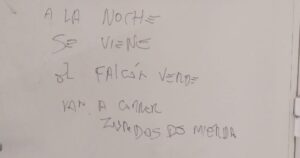 A LA NOCHE
SE VIENE
El FALCON VERDE
VAN A CORRER
ZURDOS DE MIERDA